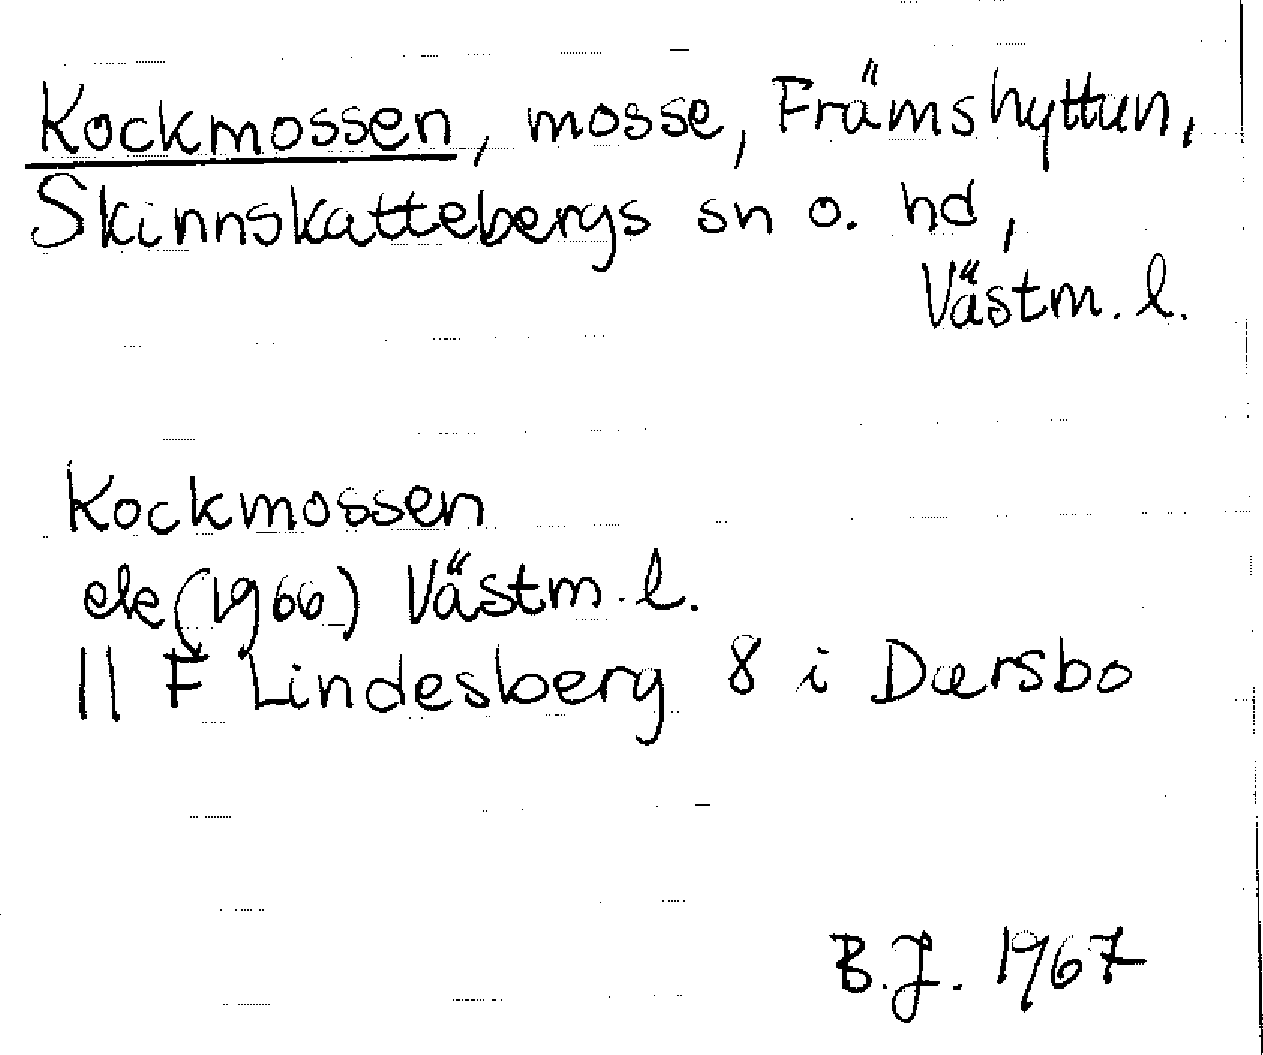 Kockmossen, mosse, Främshyttun,
Skinnskattebergs sn o. hd,
Västm. l.
Kockmossen
ek (1966) Västm. l.
11 F Lindesberg 8 i Darsbo
B.J. 1967